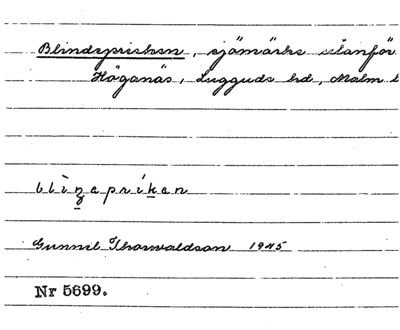 Blindepricken, sjömärke utanför
Höganäs, Luggude hd, Malm l
blìnaprikan
Gunnel Thorwaldson 1945
Nr 5699.